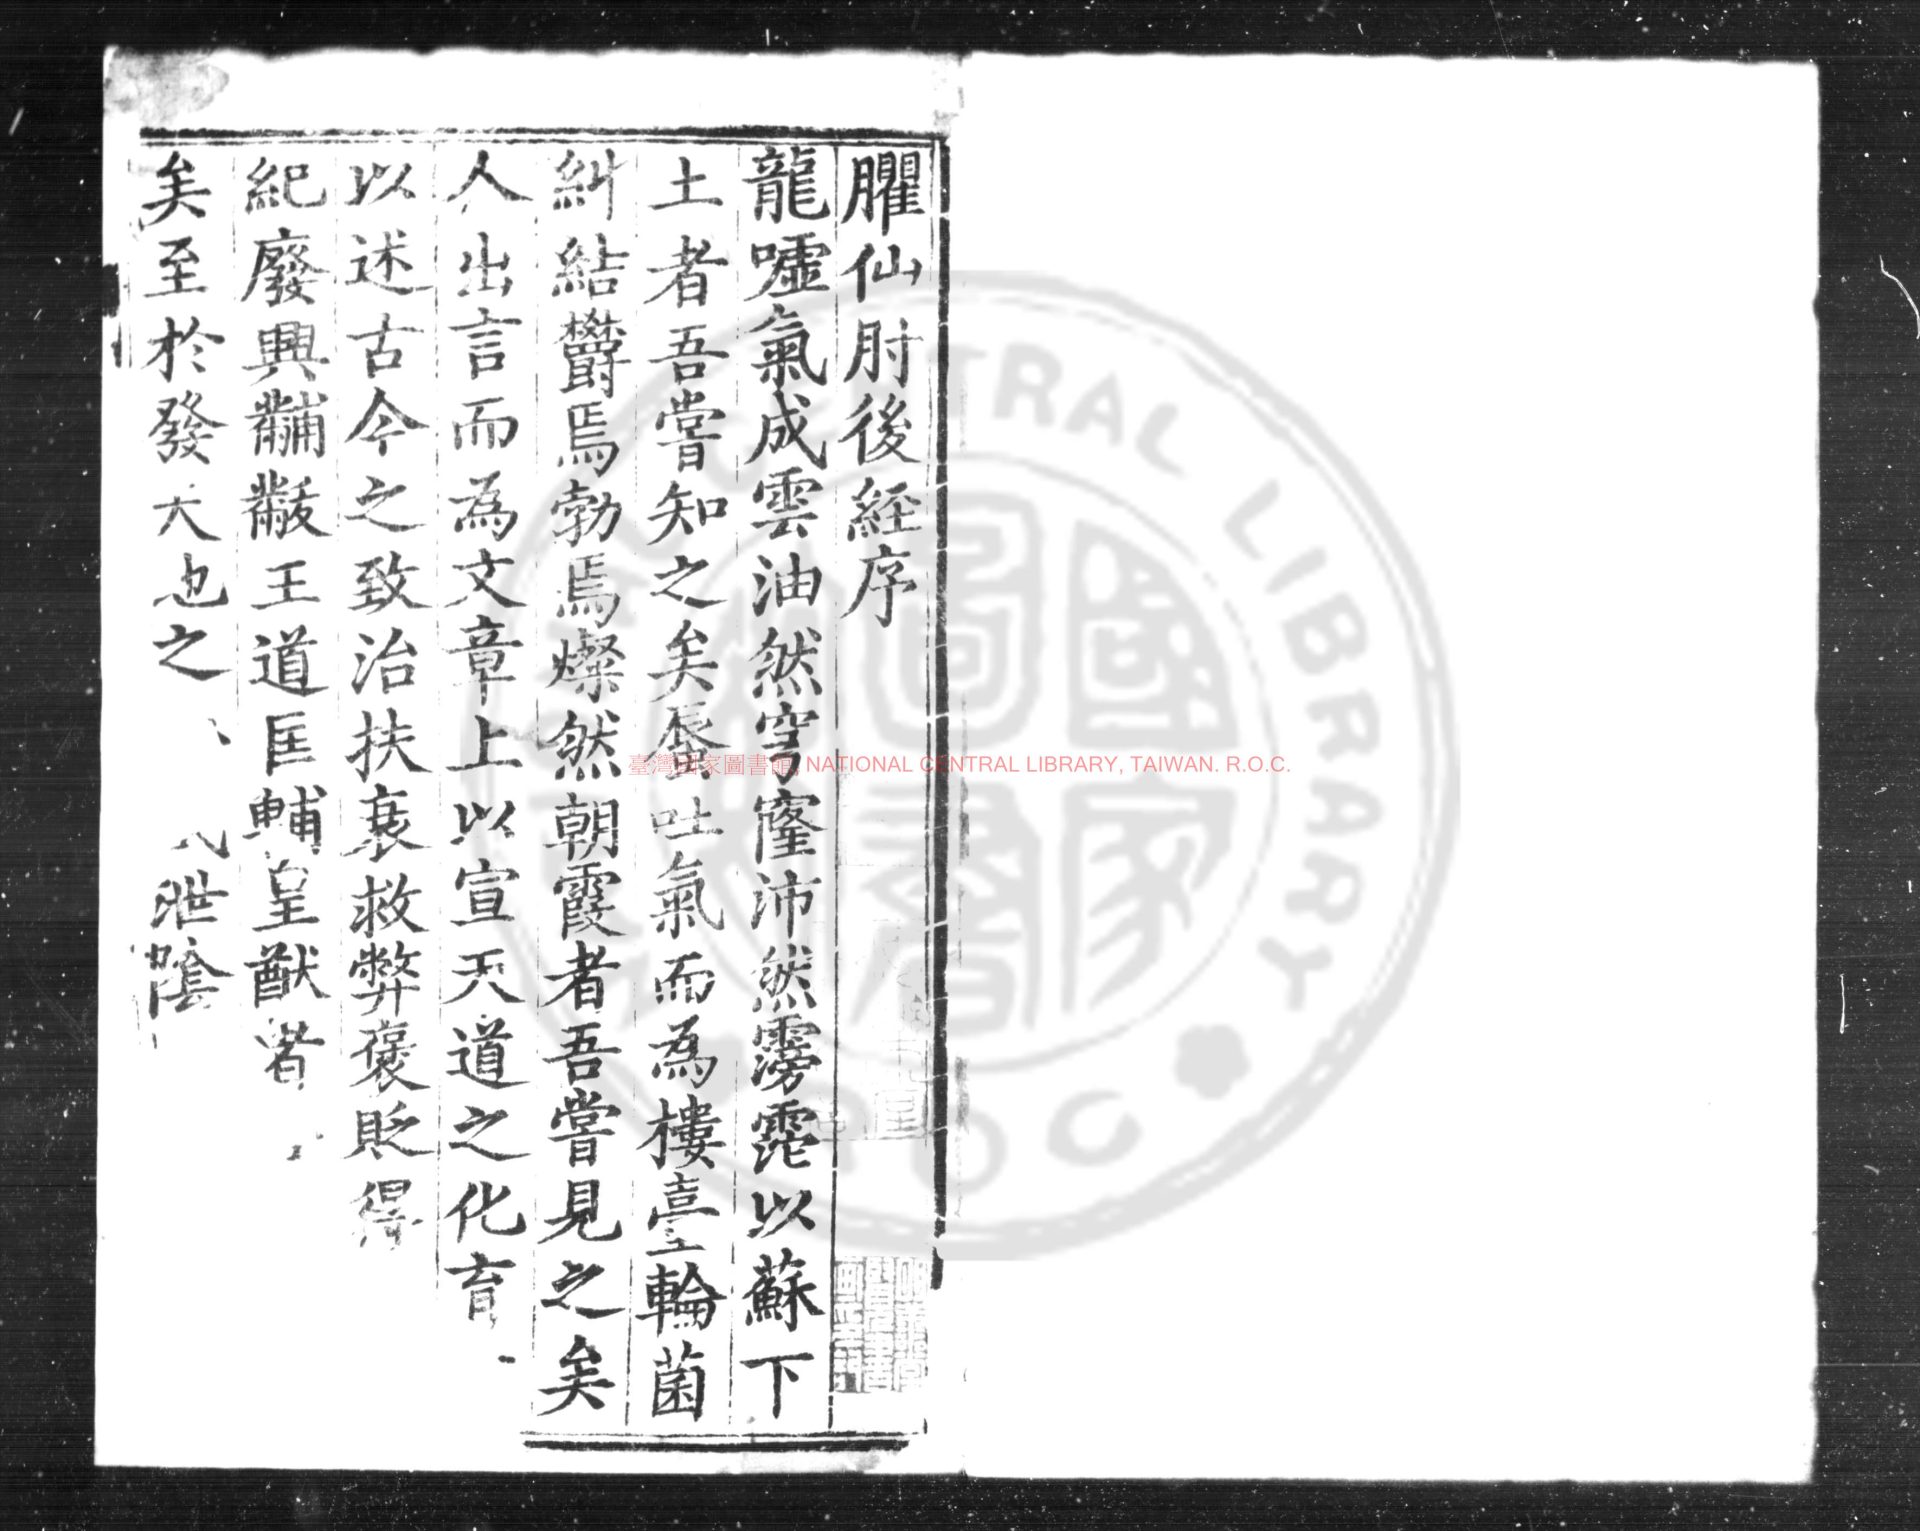 臞仙肘後経序
龍噓氣成雲油然然穹窿沛然霶霑以蘇下
土者吾嘗知之矣蜃吐氣而為樓臺輪菌
糾結欝焉勃焉燦然朝霞者吾嘗見之矣
人出言而為文章上以宣天道之化育
以述古今之致治扶衰救弊褒貶得
紀廢興黼黻王道匡輔皇猷者
矣至於發天地之
泄陰
臺灣國家圖書館, NATIONAL CENTRAL LIBRARY, TAIWAN. R.O.C.